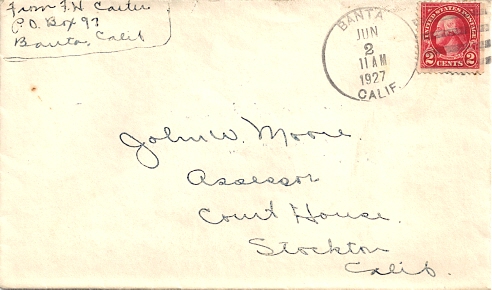 From F.H. Carter
P.O. Box 97
Banta, Calif
BANTA
JUN
2
11 AM
1927
CALIF.
UNITED STATES POSTAGE
2 CENTS 2
John W. Moore.
Assessor
Court House.
Stockton
Calif.